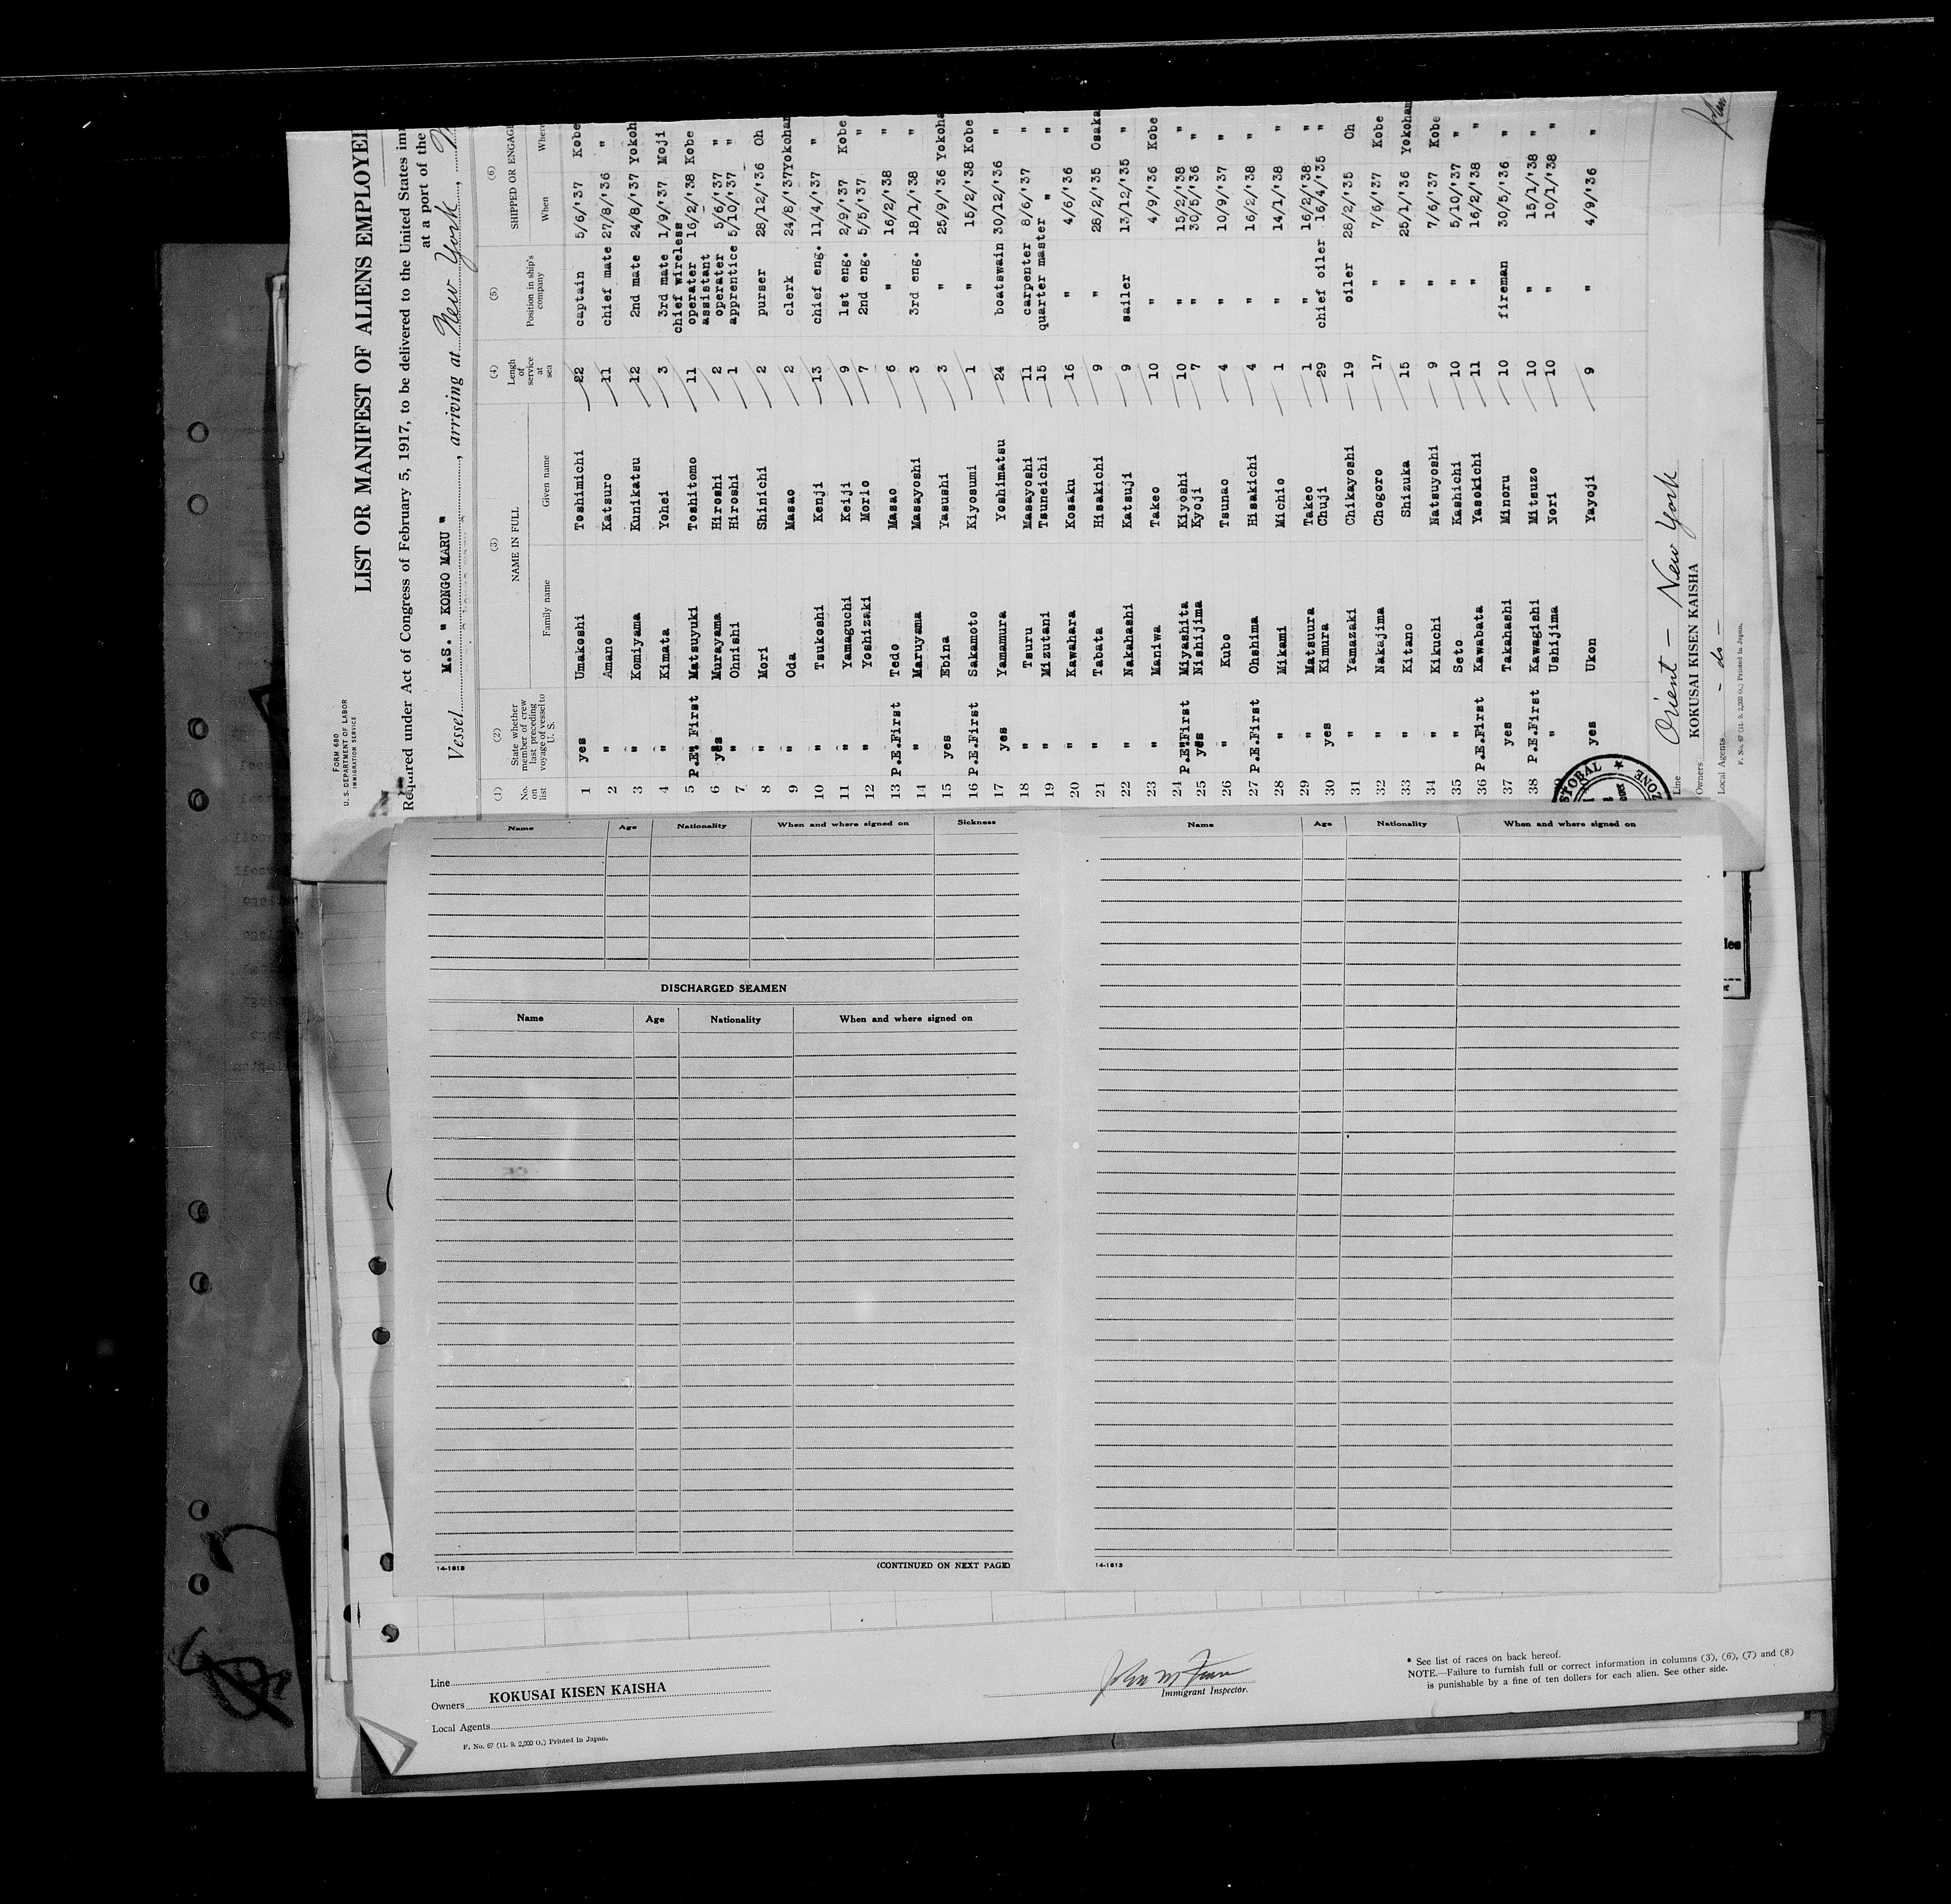 FORM 680
U. S. DEPARTMENT OF LABOR
IMMIGRATION SERVICE
LIST OR MANIFEST OF ALIENS EMPLOYED
Required under Act of Congress of February 5, 1917, to be delivered to the United States
at a port of the
Vessel M.S. " KONGO MARU " , arriving at New York,
(1) (2) (3) (4) (5) (6)
No. on list State whether member of crew last preceding voyage of vessel to U. S. NAME IN FULL Family name Given name Lengh of service at sea Position in ship's company SHIPPED OR ENGAGE When Where
1 yes Umakoshi Toshimichi 22 captain 5/6/'37 Kobe
2 " Amano Katsuro 11 chief mate 27/8/'36 "
3 " Komiyama Kunikatsu 12 2nd mate 24/8/'37 Yokoh
4 " Kimata Yohei 3 3rd mate 1/9/'37 Moji
5 P.E. First Matsuyuki Toshitomo 11 chief wireless operater 16/2/'38 Kobe
6 yes Murayama Hiroshi 2 assistant operater 5/6/'37 "
7 " Ohnishi Hiroshi 1 apprentice 5/10/'37 "
8 " Mori Shinichi 2 purser 28/12/'36 Oh
9 " Oda Masao 2 clerk 24/8/'37 Yokoham
10 " Tsukoshi Kenji 13 chief eng. 11/4/'37 "
11 " Yamaguchi Keiji 9 1st eng. 2/9/'37 Kobe
12 " Yoshizaki Morio 7 2nd eng. 5/5/'37 "
13 P.E.First Tedo Masao 6 " 16/2/'38 "
14 " Maruyama Masayoshi 3 3rd eng. 18/1/'38 "
15 yes Ebina Yasushi 3 " 25/9/'36 Yokoha
16 P.E.First Sakamoto Kiyosumi 1 " 15/2/'38 Kobe
17 yes Yamamura Yoshimatsu 24 boatswain 30/12/'36 "
18 " Tsuru Masayoshi 11 carpenter 8/6/'37 "
19 " Mizutani Tsuneichi 15 quarter master " "
20 " Kawahara Kosaku 16 " 4/6/'36 "
21 " Tabata Hisakichi 9 " 28/2/'35 Osaka
22 " Nakahashi Katsuji 9 sailer 13/12/'35 "
23 " Maniwa Takeo 10 " 4/9/'36 Kobe
24 P.E.First Miyashita Kiyoshi 10 " 15/2/'38 "
25 yes Nishijima Kyoji 7 " 30/5/'36 "
26 " Kubo Tsunao 4 " 10/9/'37 "
27 P.E.First Ohshima Hisakichi 4 " 16/2/'38 "
28 " Mikami Michio 1 " 14/1/'38 "
29 " Matsuura Takeo 1 " 16/2/'38 "
30 yes Kimura Chuji 29 chief oiler 16/4/'35 "
31 " Yamazaki Chikayoshi 19 oiler 28/2/'35 Oh
32 " Nakajima Chogoro 17 " 7/6/'37 Kobe
33 " Kitano Shizuka 15 " 25/1/'36 Yokoham
34 " Kikuchi Natsuyoshi 9 " 7/6/'37 Kobe
35 " Seto Kashichi 10 " 5/10/'37 "
36 P.E.First Kawabata Yasokichi 11 " 16/2/'38 "
37 yes Takahashi Minoru 10 fireman 30/5/'36 "
38 P.E.First Kawagishi Mitsuzo 10 " 15/1/'38 "
" Ushijima Nori 10 " 10/1/'38 "
yes Ukon Yayoji 9 " 4/9/'36 "
Line Orient - New York
Owners KOKUSAI KISEN KAISHA
Local Agents - do -
F. No. 67 (11. 9. 2,000 O.) Printed in Japan.
Name Age Nationality When and where signed on Sickness
DISCHARGED SEAMEN
Name Age Nationality When and where signed on
14-1613
(CONTINUED ON NEXT PAGE)
Name Age Nationality When and where signed on
14-1613
Line
Owners KOKUSAI KISEN KAISHA
Local Agents
F. No. 67 (11. 9. 2,000 O.) Printed in Japan.
Immigrant Inspector.
* See list of races on back hereof.
NOTE.—Failure to furnish full or correct information in columns (3), (6), (7) and (8)
is punishable by a fine of ten dollars for each alien. See other side.